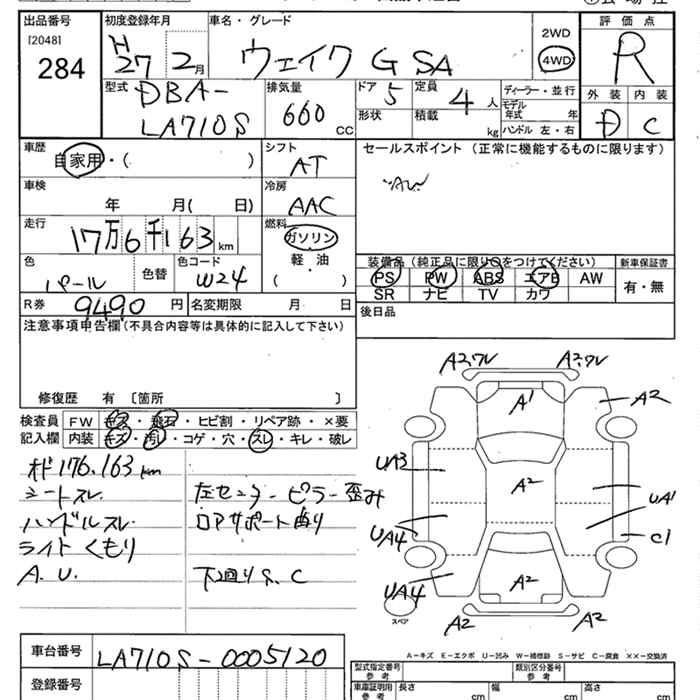 出品番号
[2048]
284
初度登録年月
H27 2月
車名・グレード
ウェイク G SA
2WD
4WD
評価点
R
外装 内装
D C
型式
DBA-
LA710S
排気量
660 cc
ドア
5
形状
定員
4人
積載 kg
ディーラー・並行
モデル年式 年
ハンドル 左・右
車歴
自家用・( )
シフト
AT
セールスポイント(正常に機能するものに限ります)
車検
年 月( 日)
冷房
AAC
走行
17万6千163 km
燃料
ガソリン
軽・油
( )
色
パール
色替
色コード
W24
装備品(純正品に限り○をつけてください)
PS PW ABS エアB AW
SR ナビ TV カワ
新車保証書
有・無
R券 9490 円
名変期限 月 日
後日品
注意事項申告欄(不具合内容等は具体的に記入して下さい)
修復歴 有 〔箇所 〕
検査員記入欄
FW キズ・飛石・ヒビ割・リペア跡・×要
内装 キズ・汚レ・コゲ・穴・スレ・キレ・破レ
メ 176.163 km
シートスレ
ハンドルスレ
ライトくもり
A.U.
左センターピラー歪み
ロアサポート曲り
下回りS、C
A2,ワレ A2,ワレ
A1
A2
UA3
A2
UA1
UA4
C1
UA4
A2
A2 A2
スペア
A-キズ E-エクボ U-凹み W-補修跡 S-サビ C-腐食 ××-交換済
車台番号
LA710S-0005120
登録番号
型式指定番号 参考
類別区分番号 参考
車庫証明用 参考
長さ cm
幅 cm
高さ cm